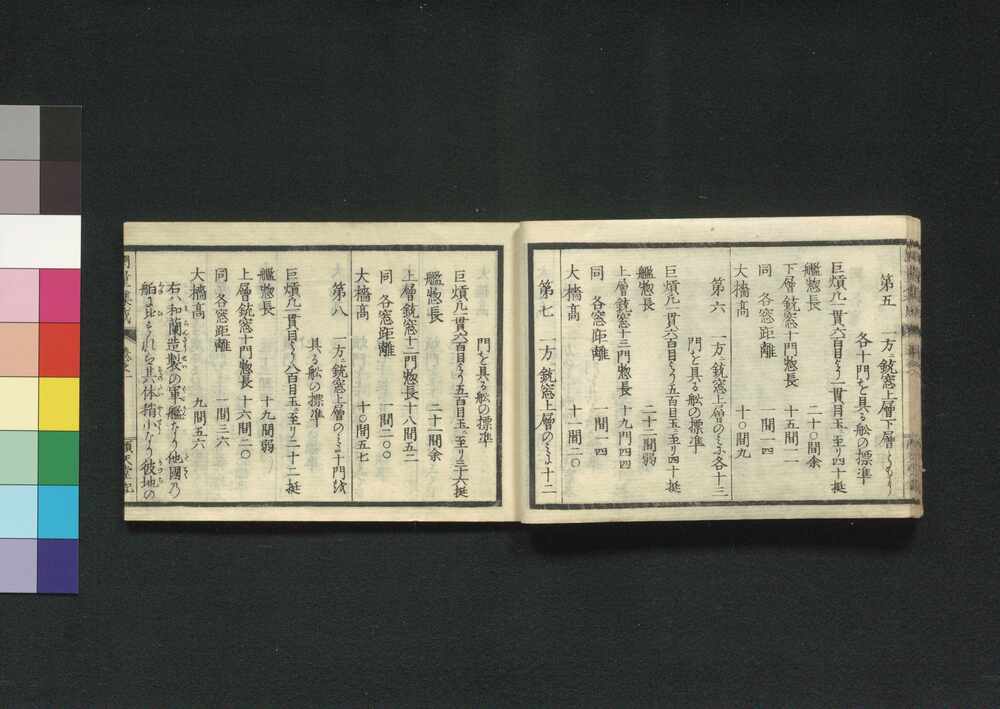 第五 一方ニ銃窓上層下層ともより
各十門を具る舩の標準
巨熕凡一貫六百目より一貫目玉ニ至り四十挺
艦惣長 二十〇間余
下層銃窓十門惣長 十五間二一
同 各窓距離 一間一四
大檣高 十〇間九
第六 一方ニ銃窓上層のミに各十三
門を具る舩の標準
巨熕凡一貫六百目より五百目玉ニ至り四十挺
艦惣長 二十二間弱
上層銃窓十三門惣長 十九門四四
同 各窓距離 一間一四
大檣高 十一間二〇
第七 一方ニ銃窓上層のミに十二
門を具る舩の標準
巨熕凡一貫六百目より五百目玉ニ至り三十六挺
艦惣長 二十一間余
上層銃窓十二門惣長 十八間五二
同 各窓距離 一間二〇
大檣高 十〇間五七
第八 一方ニ銃窓上層のミに十門を
具る舩の標準
巨熕凡一貫目より八百目玉ニ至り二十二挺
艦惣長 十九間弱
上層銃窓十門惣長 十六間二〇
同 各窓距離 一間三六
大檣高 九間五六
右ハ和蘭造製の軍艦なり他國乃
舶に比すれハ其体稍小なり彼地の